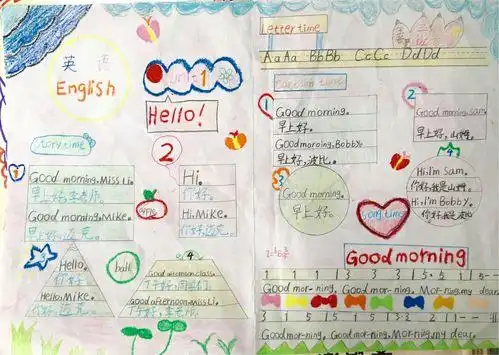 英语
English
Unit 1
Hello!
Story time
1
Good morning, Miss Li.
早上好,李老师。
Good morning, Mike.
早上好,迈克。
2
Hi.
你好。
Hi, Mike.
你好,迈克。
apple
3
Hello.
你好。
Hello, Mike.
你好,迈克。
ball
4
Good afternoon, class.
下午好,同学们。
Good afternoon, Miss Li.
下午好,李老师。
Letter time
Aa Aa Bb Bb Cc Cc Dd Dd
Cartoon time
1
Good morning.
早上好。
Good morning, Bobby.
早上好,波比。
2
Good morning, Sam.
早上好,山姆。
3
Good morning.
早上好。
4
Hi, I'm Sam.
你好,我是山姆。
Hi, I'm Bobby.
你好,我是波比
Song time
Good morning
1 1 1 3 3 3 5 5 1 5 - -
Good mor-ning, Good mor-ning, Mor-ning, my dear.
Good mor-ning, Good mor-ning, Mor-ning, my dear.